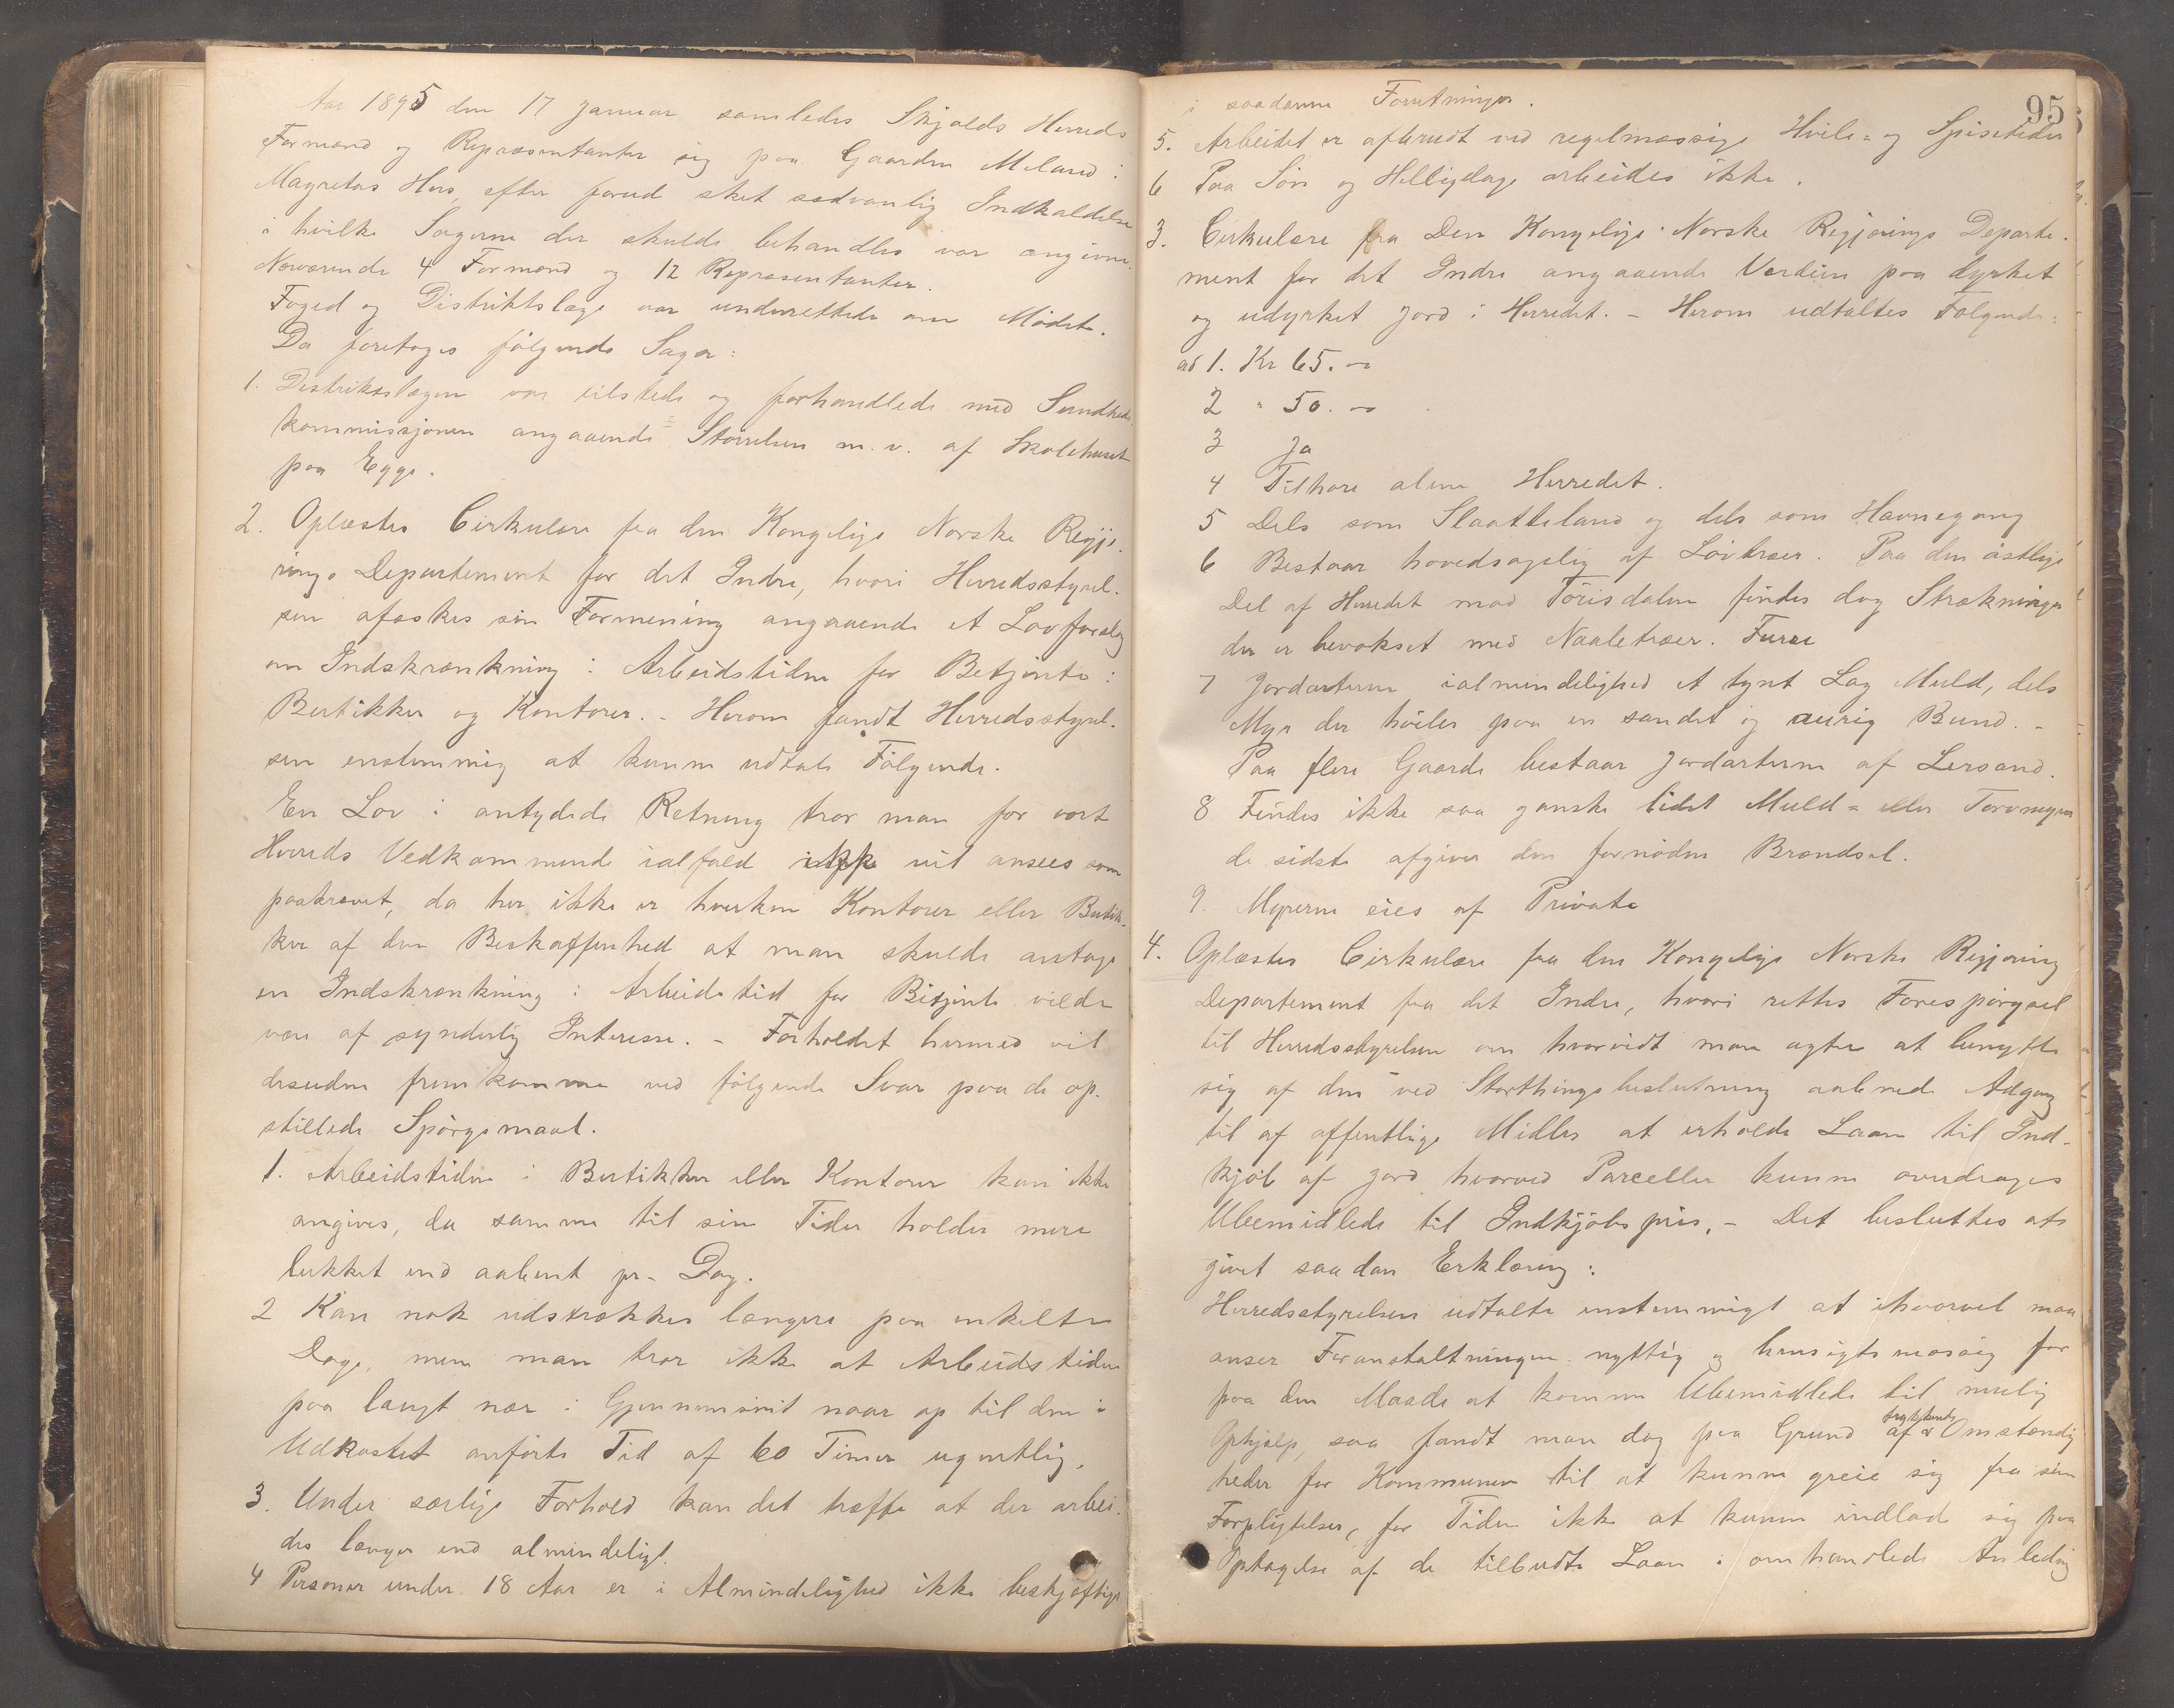 Aar 1895 den 17 Januar samledes Skjolds Herreds
Formænd og Repræsentanter sig paa Gaarden Meland i
Magretas Hus, efter forud sket sedvanlig Indkaldelse
i hvilke Sagerne der skulde behandles var angivne.
Nærværende 4 Formænd og 12 Repræsentanter.
Foged og Distriktslæge var underrettede om Mödet.
Da foretoges fölgende Sager:
1. Distrikslægen var tilstede og forhandlede med Sundheds
kommissjonen angaaende Störrelsen m.v. af Skolehuset
paa Egge.
2. Oplæstes Cirkulære fra den Kongelige Norske Regje-
rings Departement for det Indre, hvori Herredsstyrel-
sen afæskes sin Formening angaaende et Lovforslag
om Indskrænkning i Arbeidstiden for Betjente i
Butikker og Kontorer. - Herom fandt Herredsstyrel-
sen enstemmig at kunne udtale Fölgende.
En Lov i antydede Retning tror man for vort
Herreds Vedkommende ialfald ikke vil ansees som
paakrævet, da her ikke er hverken Kontorer eller Butik-
ker af den Beskaffenhed at man skulde antage
en Indskrænkning i Arbeidstid for Betjente vilde
være af synderlig Interesse. - Forholdet hermed vil
desuden fremkomme ved fölgende Svar paa de op-
stillede Spörgsmaal.
1. Arbeidstiden i Butikker eller Kontorer kan ikke
angives, da samme til sine Tider holdes mere
lukket end aabent pr. Dag.
2 Kan nok udstrækkes længere paa enkelte
Dage, men man tror ikke at Arbeidstiden
paa langt nær i Gjennemsnit naar op til den i
Udkastet anförte Tid af 60 Timer ugentlig.
3. Under særlige Forhold kan det træffe at der arbei-
des længer end almindeligt.
4 Personer under 18 Aar er i Almindelighed ikke beskjæftiget
95
i saadanne Forretninger.
5. Arbeidet er afbrudt ved regelmæssige Hvile= og Spisetider
6 Paa Søn og Helligdage arbeides ikke.
3. Cirkulære fra Den Kongelige Norske Regjerings Departe-
ment for det Indre angaaende Verdien paa dyrket
og udyrket Jord i Herredet. - Herom udtaltes Følgende:
ad 1. Kr 65. -
2 " 50. -
3 Ja
4 Tilhøre alene Herredet.
5 Dels som Slaatteland og dels som Havnegang
6 Bestaar hovedsagelig af Løvtræer. Paa den östlige
Del af Herredet mod Törisdalen findes dog Strækninger
der er bevokset med Naaletræer. Furu
7 Jordarterne ialmindelighed et tynt Lag Muld, dels
Myr der hviler paa en sandet og aurig Bund. -
Paa flere Gaarde bestaar Jordarterne af Lersand.
8 Findes ikke saa ganske lidet Muld= eller Torvmyrer
de sidste afgiver den fornødne Brændsel.
9. Myrerne eies af Private
4. Oplæstes Cirkulære fra den Kongelige Norske Regjering
Departement fra det Indre, hvori rettes Forespørgsel
til Herredsstyrelsen om hvorvidt man agter at benytte
sig af den ved Storthingsbeslutning aabnede Adgang
til af offentlige Midler at erholde Laan til Ind-
kjøb af Jord hvorved Parceller kunne overdrages
Ubemidlede til Indkjøbspris, - Det besluttes at
givet saadan Erklæring:
Herredsstyrelsen udtalte enstemmigt at ihvorvel man
anser Foranstaltningen nyttig og hensigtsmæssig for
paa den Maade at komme Ubemidlede til mulig
Ophjælp, saa fandt man dog paa Grund af trykkende Omstændig
heder for Kommunen til at kunne greie sig fra sine
Forpligtelser, for Tiden ikke at kunne indlade sig paa
Optagelse af de tilbudte Laan i omhandlede Anledning